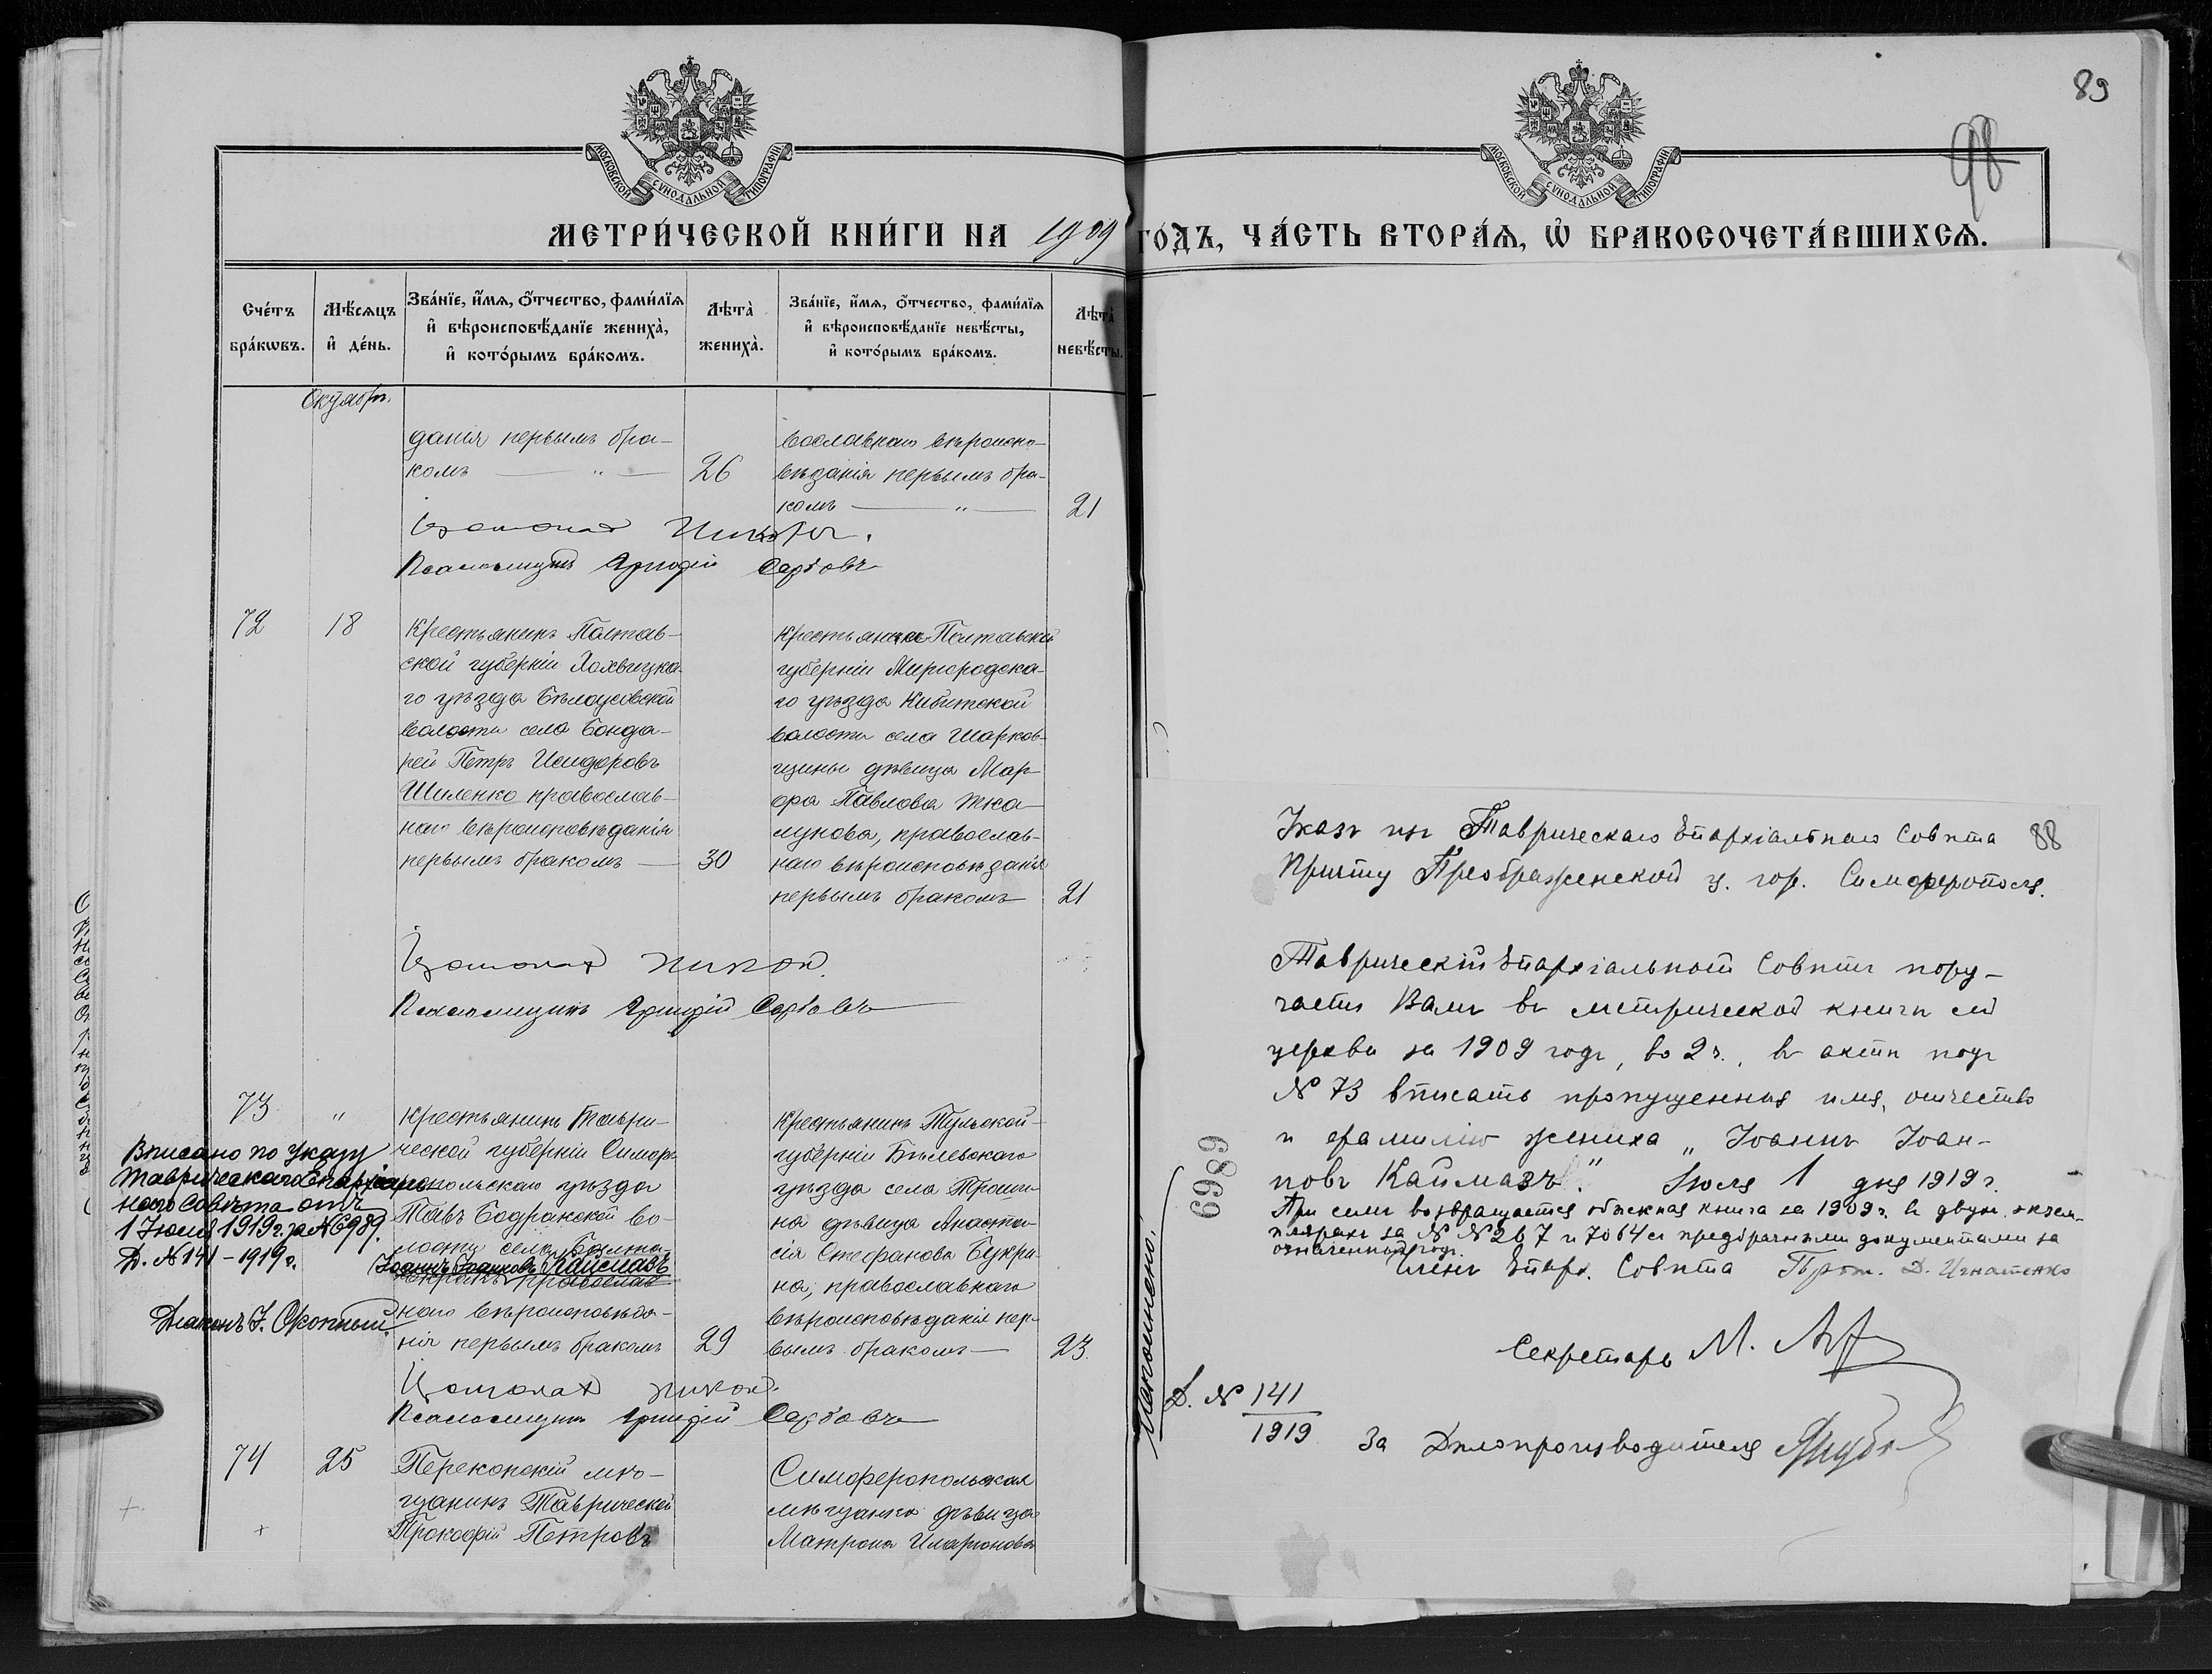 МОСКОВСКОЙ СѴНОДАЛЬНОЙ ТИПОГРАФІИ
МЕТРИ́ЧЕСКОЙ КНИ́ГИ НА 1909
Сче́тъ бра́кѡвъ.
Мѣ́сяцъ и҆ де́нь.
Зва́нїе, и҆́мѧ, ѻ҆́тчество, фами́лїѧ
и҆ вѣроисповѣ́данїе жениха̀,
и҆ кото́рымъ бра́комъ.
Лѣта̀ жениха̀.
Зва́нїе, и҆́мѧ, ѻ҆́тчество, фами́лїѧ
и҆ вѣроисповѣ́данїе невѣ́сты,
и҆ кото́рымъ бра́комъ.
Лѣта̀ невѣ́сты.
Октябрь.
данія первымъ бра-
комъ — „ — 26
вославнаго вѣроиспо-
вѣданія первымъ бра-
комъ — „ — 21
Іеромонахъ Никонъ.
Псаломщикъ Григорій Сербовъ
72
18
Крестьянинъ Полтав-
ской губерніи Лохвицка-
го уѣзда Бѣлоусовской
волости села Бонда-
рей Петръ Исидоровъ
Шиленко православ-
наго вѣроисповѣданія
первымъ бракомъ — 30
Крестьянка Полтавской
губерніи Миргородска-
го уѣзда Кибитской
волости села Шарков-
щины дѣвица Мар-
фа Павлова Жка-
лунова, православ-
наго вѣроисповѣданія
первымъ бракомъ 21
Іеромонахъ Никон.
Псаломщикъ Григорій Сербовъ
73
"
Вписано по указу
Таврическаго Епархіаль-
наго Совѣта отъ
1 Іюля 1919 г. за № 6989.
Д. № 141 - 1919 г.
Діаконъ І. Окопный.
Крестьянинъ Таври-
ческой губерніи Симфе-
ропольскаго уѣзда
Тавъ Бодракской во-
лости села
Іоаннъ Іоанновъ Каймазъ
православ
наго вѣроисповѣда-
нія первымъ бракомъ 29
Крестьянинъ Тульской
губерніи Бѣлевскаго
уѣзда села Трошки-
на дѣвица Анаста-
сія Стефанова Букри-
на, православнаго
вѣроисповѣданія пер-
вымъ бракомъ — 23.
Іеромонахъ Никон.
Псаломщикъ Григорій Сербовъ
74
25
Перекопскій мѣ-
щанинъ Таврической
Прокофій Петровъ
Симферопольская
мѣщанка дѣвица
Матрона Иларионова
89
98
МОСКОВСКОЙ СѴНОДАЛЬНОЙ ТИПОГРАФІИ
ГО́ДЪ, ЧА́СТЬ ВТОРА́Ѧ, Ѡ҆ БРАКОСОЧЕТА́ВШИХСѦ.
Указъ изъ Таврическаго Епархіальнаго Совѣта 88
Причту Преображенской ц. гор. Симферополя.
Таврическій Епархіальный Совѣтъ пору-
чаетъ Вамъ въ метрической книгѣ сей
церкви за 1909 годъ, во 2 ч., въ актѣ подъ
№ 73 вписать пропущенныя имя, отчество
и фамилію жениха „Іоаннъ Іоан-
новъ Каймазъ." Іюля 1 дня 1919 г.
При семъ возвращается обыскная книга за 1909 г. въ двухъ экзем-
плярахъ за № № 267 и 7064 съ предбрачными документами за
означенный годъ.
Членъ Епарх. Совѣта Прот. Д. Игнатенко
Секретарь М.
За Дѣлопроизводителя
6989
Исполнено.
Д. № 141
1919